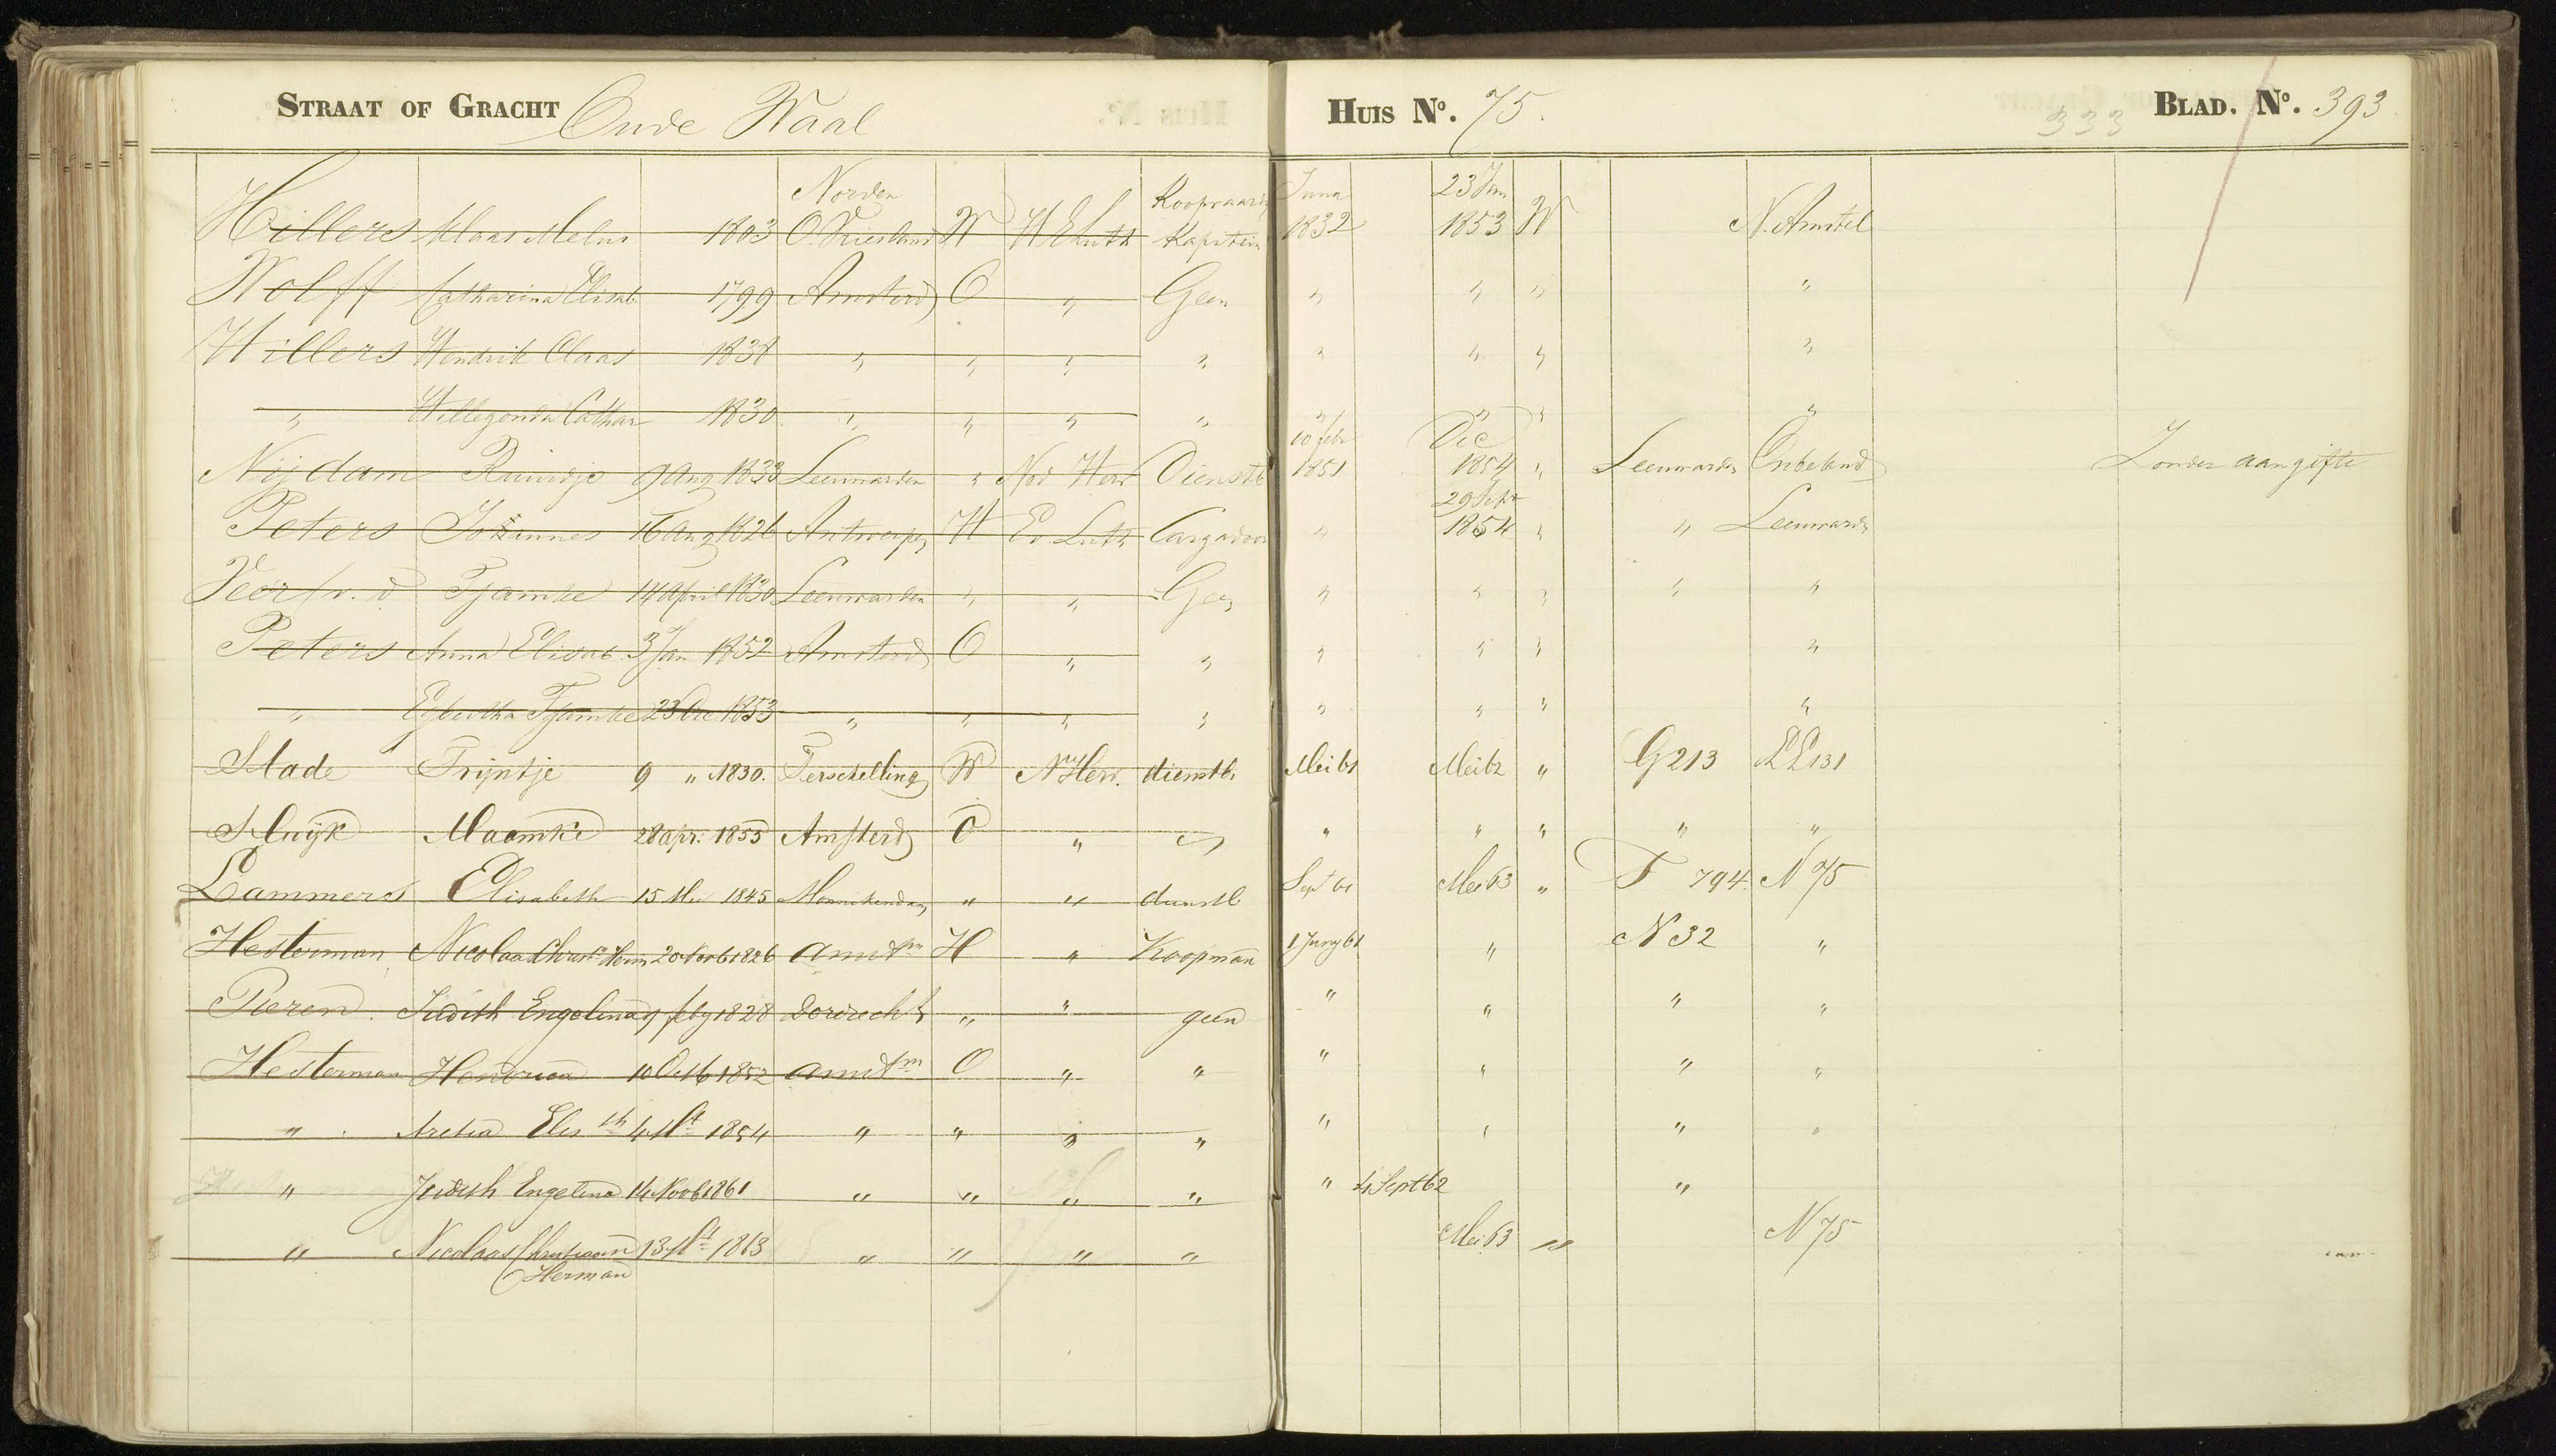 STRAAT OF GRACHT Oude Waal HUIS No. 75. 333 BLAD. No. 393
Norden Koopvaardy Juny 23 Jan
Hillers Klaas Melus 1803 O. Vriesland W H E Luth Kapitein 1832 1853 W N. Amstel
Wolff Catharina Elisab 1799 Amsterd O " Geen " " " "
Hillers Hendrik Claas 1838 " " " " " " " "
" Hillegonda Cathar 1830 " " " " " " " "
10 febr Dec
Nijdam Reindje 9 Aug 1833 Leeuwarden " Ned Herv Dienstb 1851 1854 " Leeuwarden Onbekend Zonder aangifte
29 Sept
Peters Johannes 16 Aug 1826 Antwerpen H Ev Luth Cargadoor " 1854 " " Leeuward
Veer /v. d Tjamke 14 April 1830 Leeuwarden " " Geen " " " " "
Peters Anna Elisab 3 Jan 1852 Amsterd O " " " " " "
" Egbertha Tjamke 23 Dec 1853 " " " " " " " "
Stade Trijntje 9 " 1830. Terschelling W N Herv. dienstb Mei 61 Mei 62 " G 213 LL 131
Sluijk Maamke 28 apr: 1855 Amsterd O " " " " " " "
Lammers Elisabeth 15 Mei 1845 Monnikendam " " dienstb Sept 61 Mei 63 " T 794. N 75
Hesterman Nicolaas Christn Herm 20 Novb 1826 amstm H " Koopman 1 Juny 61 " N 32 "
Pieren Judith Engelina 9 feby 1828 Dordrecht " " geen " " " "
Hesterman Hendrica 10 Octb 1852 amstm O " " " " " "
" Aretia Elis th 4 Mt 1854 " " " " " " " "
" Judith Engelina 14 Novb 1861 " " " " " 4 Sept 62 "
" Nicolaas Christiaan 13 Mt 1863 " " " " Mei 63 " N 75
Herman